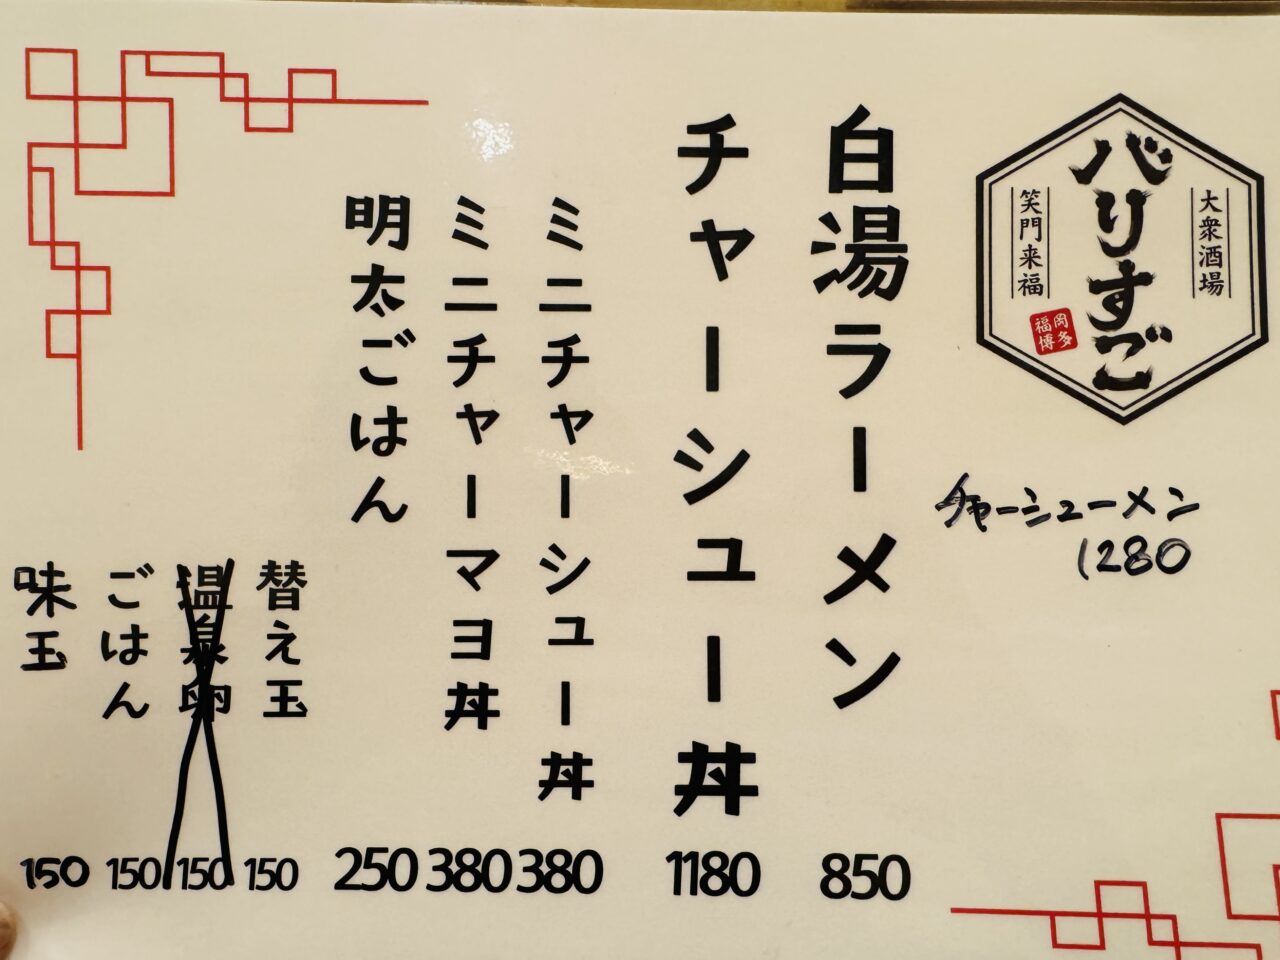 大衆酒場
バリすご
笑門来福
福岡
博多
チャーシューメン
1280
白湯ラーメン 850
チャーシュー丼 1180
ミニチャーシュー丼 380
ミニチャーマヨ丼 380
明太ごはん 250
替え玉 150
温泉卵 150
ごはん 150
味玉 150